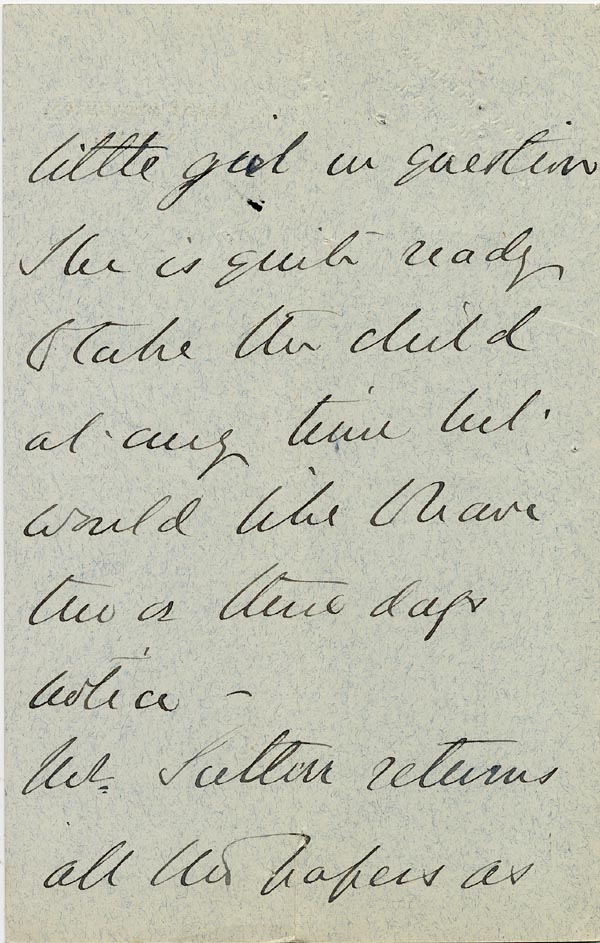 little girl in question
She is quite ready
to take the child
at any time but
would like to have
two or three days
notice –
Mr. Sutton returns
all the papers as